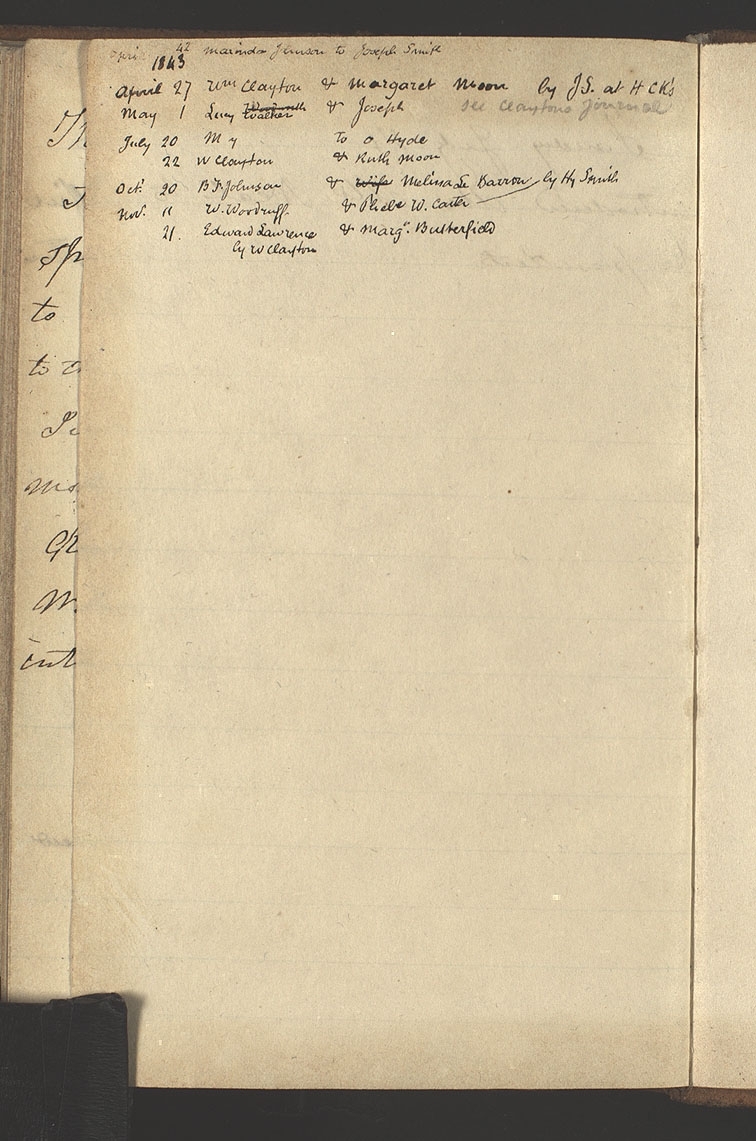 April 42 Marinda Johnson to Joseph Smith
1843
April 27 Wm Clayton & Margaret Moon by J.S. at H C K's
May 1 Lucy Woodruth Walker & Joseph see Claytons journal
July 20 M y to O Hyde
22 W Clayton & Ruth Moon
Oct. 20 B F Johnson & Wife Melissa Le Barrow by Hy Smith
Nov. 11 W. Woodruff & Phebe W. Carter
21. Edward Lawrence & Margt. Butterfield
by W Clayton
to
int